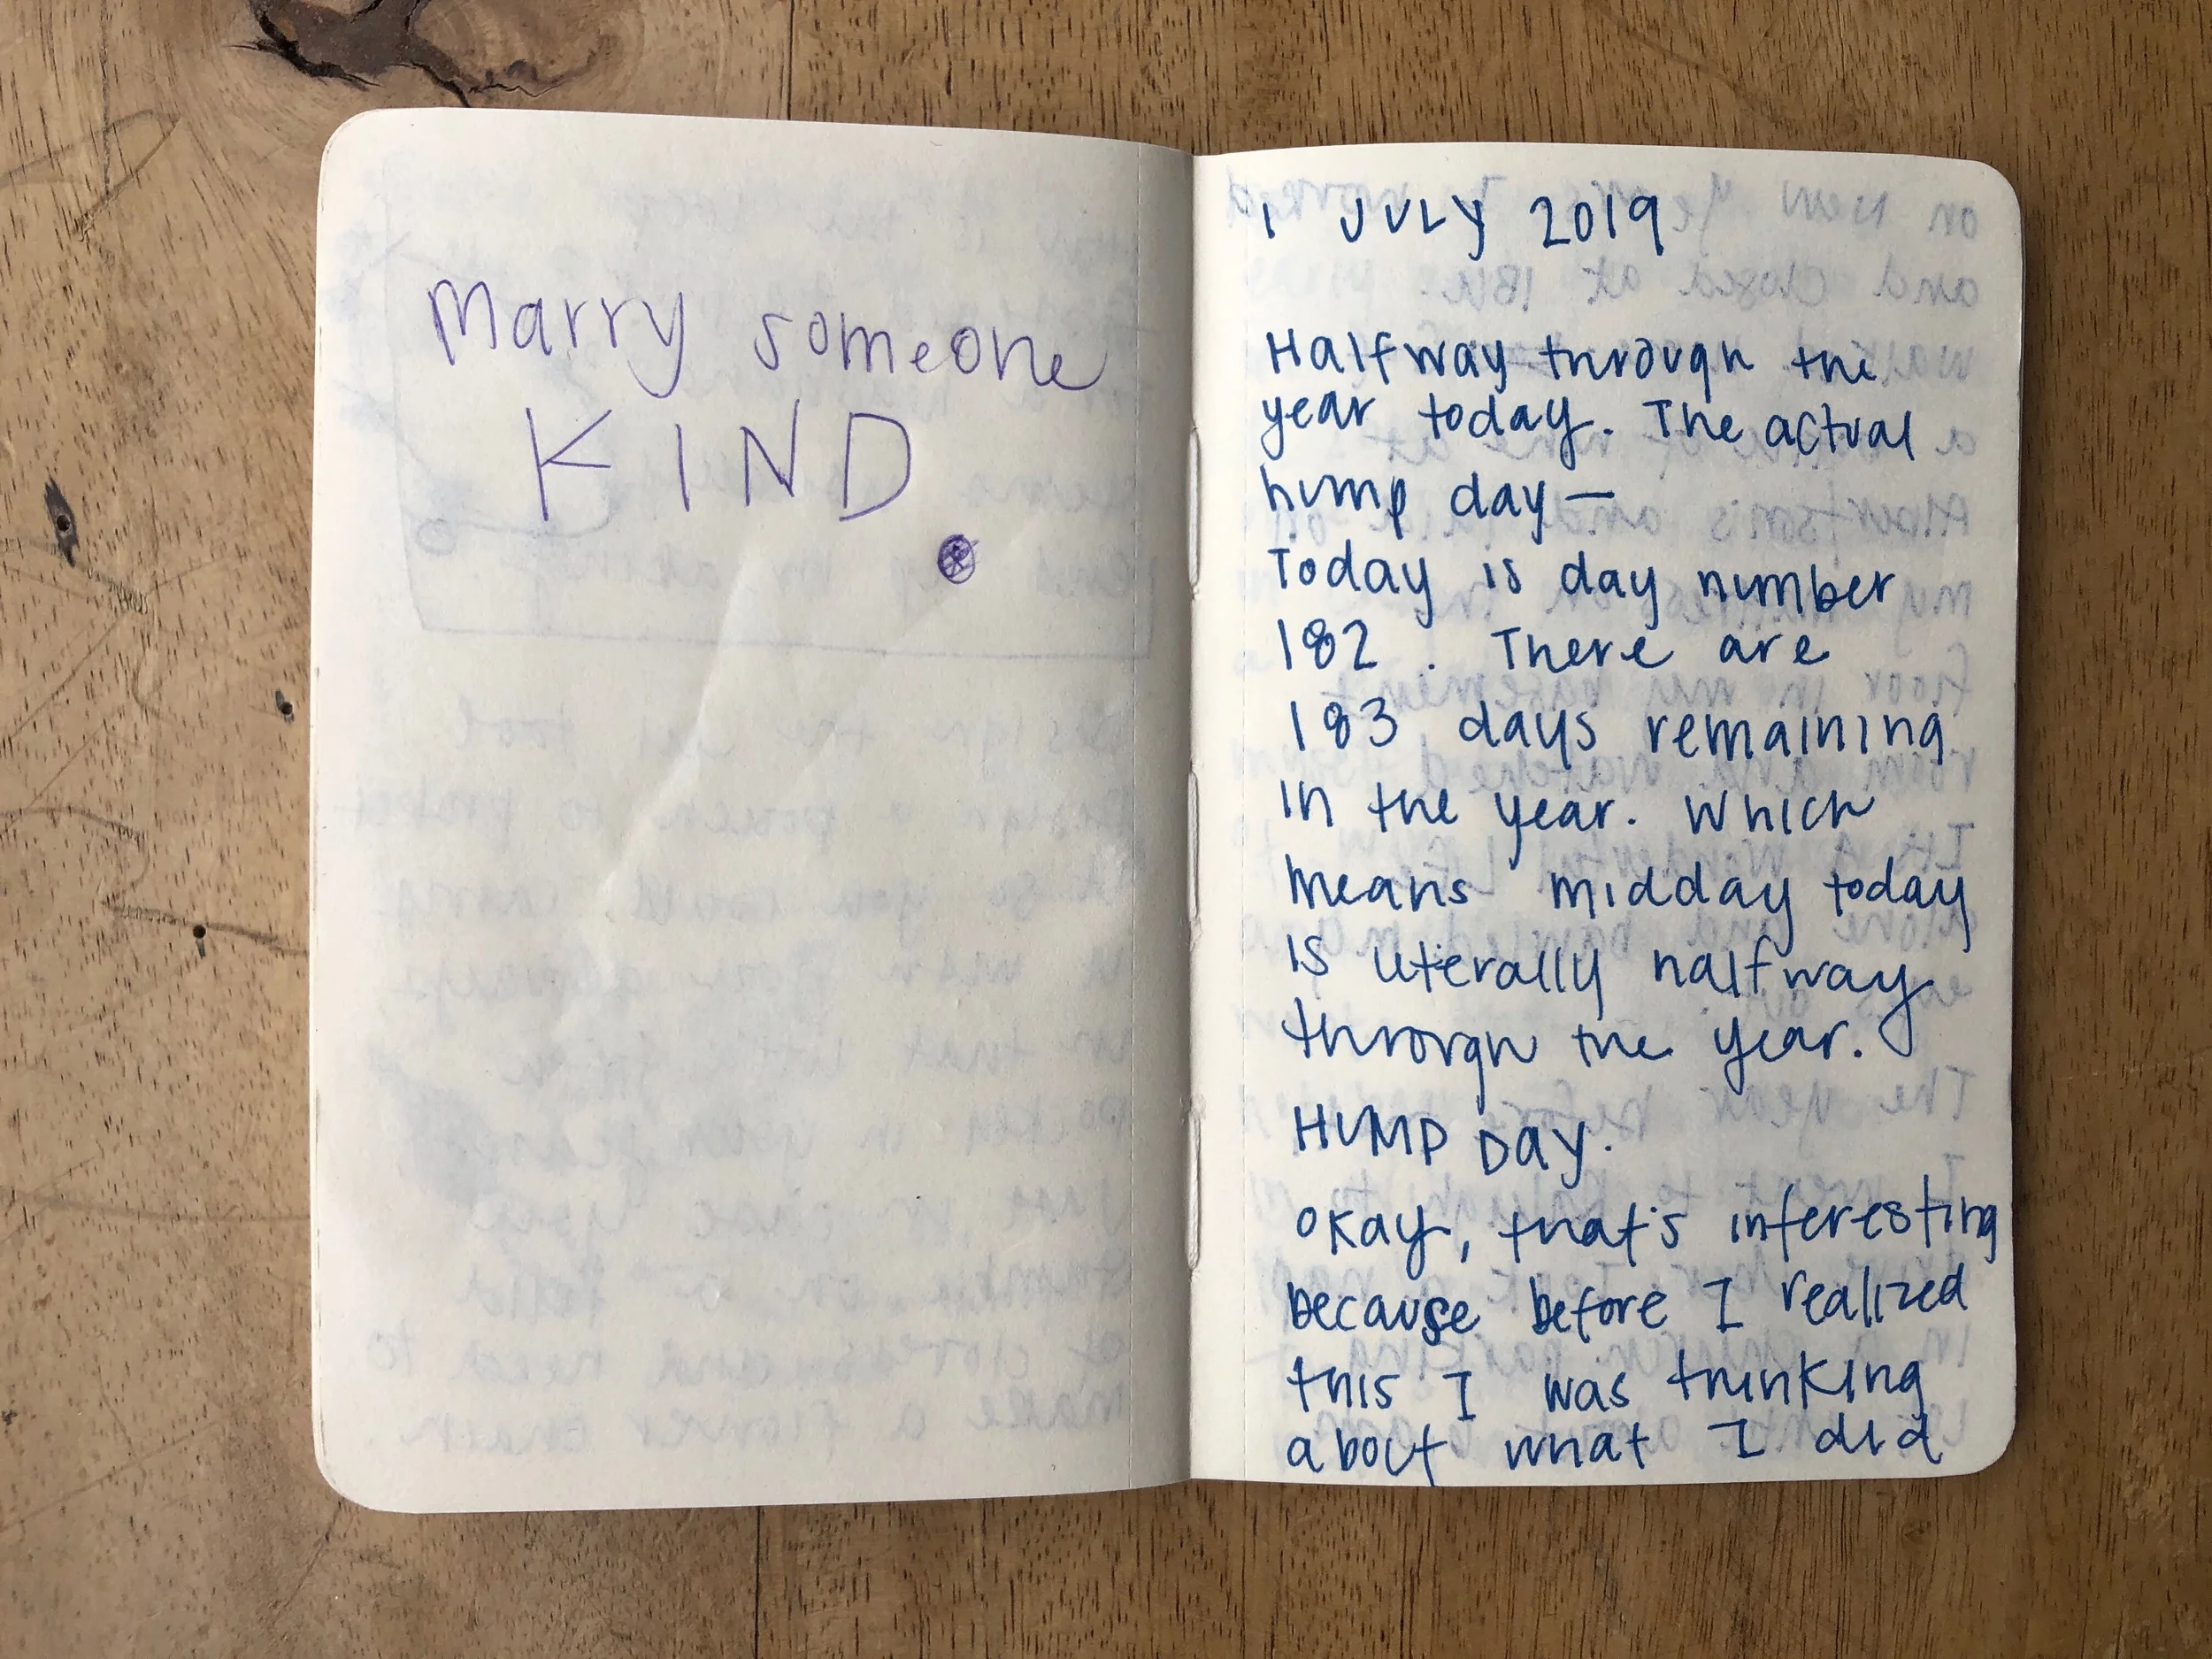 Marry someone
KIND.
1 JULY 2019
Halfway through the
year today. The actual
hump day—
Today is day number
182. There are
183 days remaining
in the year. Which
means midday today
is literally halfway
through the year.
HUMP DAY.
Okay, that's interesting
because before I realized
this I was thinking
about what I did